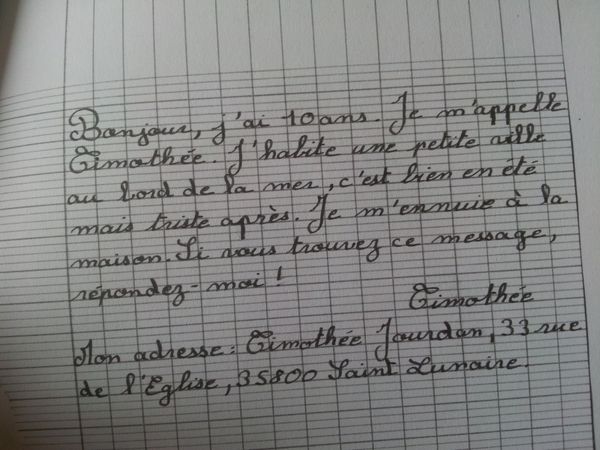 Bonjour, j'ai 10 ans. Je m'appelle
Timothée. J'habite une petite ville
au bord de la mer, c'est bien en été
mais triste après. Je m'ennuie à la
maison. Si vous trouvez ce message,
répondez-moi !
Timothée
Mon adresse : Timothée Jourdan, 33 rue
de l'Eglise, 35800 Saint Lunaire.